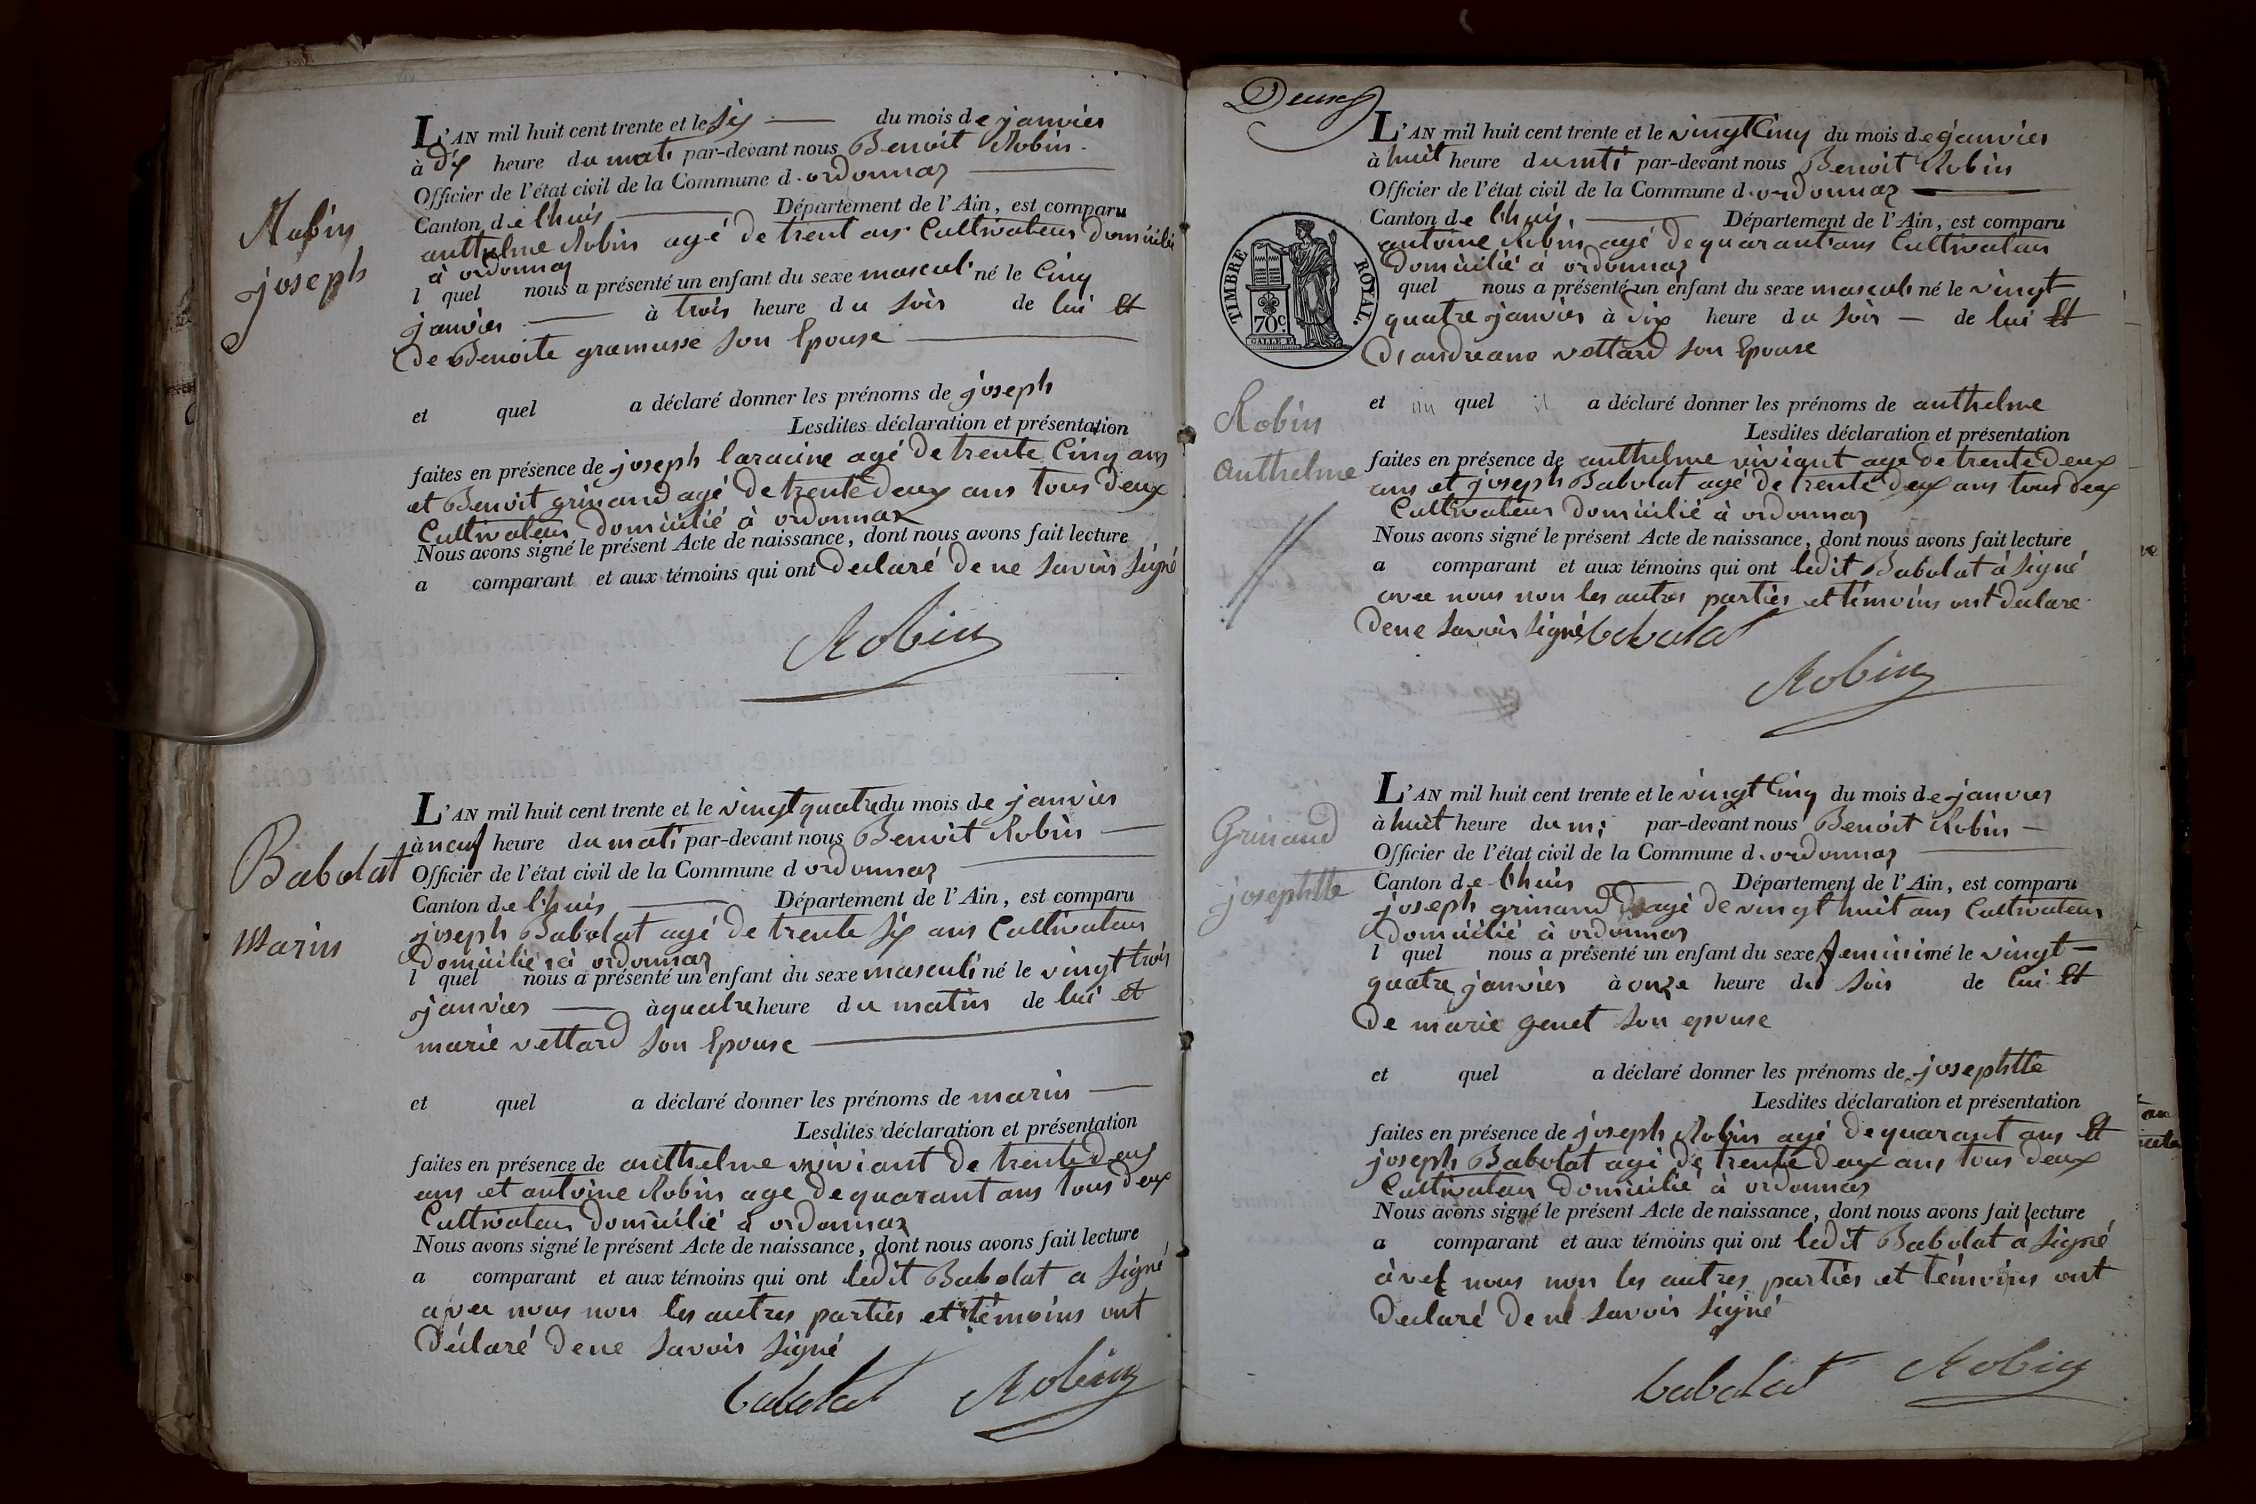 Robin
joseph
L'AN mil huit cent trente et le six du mois de janvier
à dix heure du mati par-devant nous Benoit Robin
Officier de l'état civil de la Commune d. ordonnaz
Canton de lhuis Département de l'Ain, est comparu
anthelme Robin agé de trent ans Cultivateur domicilié
à ordonnaz
l quel nous a présenté un enfant du sexe mascul né le Cinq
janvier à trois heure du soir de lui et
de Benoite gramusse son Epouse
et quel a déclaré donner les prénoms de joseph
Lesdites déclaration et présentation
faites en présence de joseph laracine agé de trente Cinq ans
et Benoit grinand agé de trente deux ans tous deux
Cultivateur domicilié à ordonnaz
Nous avons signé le présent Acte de naissance, dont nous avons fait lecture
a comparant et aux témoins qui ont declaré de ne savoir signé
Robin
Babolat
marin
L'AN mil huit cent trente et le vingt quatre du mois de janvier
à neuf heure du mati par-devant nous Benoit Robin
Officier de l'état civil de la Commune d ordonnaz
Canton de lhuis Département de l'Ain, est comparu
joseph Babolat agé de trente six ans Cultivateur
domicilié à ordonnaz
l quel nous a présenté un enfant du sexe masculi né le vingt trois
janvier à quatre heure du matin de lui et
marie vettard son Epouse
et quel a déclaré donner les prénoms de marin
Lesdites déclaration et présentation
faites en présence de anthelme viviant de trente deux
ans et antoine Robin age de quarant ans tous deux
Cultivateur domicilié à ordonnaz
Nous avons signé le présent Acte de naissance, dont nous avons fait lecture
a comparant et aux témoins qui ont ledit Babolat a signé
avec nous non les autres parties et témoins ont
déclaré de ne savoir signé
babolat Robin
Deux
L'AN mil huit cent trente et le vingt Cinq du mois de janvier
à huit heure du mti par-devant nous Benoit Robin
Officier de l'état civil de la Commune d. ordonnaz
Canton de lhuis. Département de l'Ain, est comparu
antoine Robin agé de quarant ans Cultivateur
domicilié à ordonnaz
quel nous a présenté un enfant du sexe mascul né le vingt
quatre janvier à dix heure du soir de lui et
d'andreane vettard son Epouse
TIMBRE ROYAL.
70c
Robin
anthelme
et au quel il a déclaré donner les prénoms de anthelme
Lesdites déclaration et présentation
faites en présence de anthelme viviant age de trente deux
ans et joseph Babolat agé de trente deux ans tous deux
Cultivateur domicilié à ordonnaz
Nous avons signé le présent Acte de naissance, dont nous avons fait lecture
a comparant et aux témoins qui ont ledit Babolat à signé
avec nous non les autres parties et témoins ont declare
de ne savoir signé babolat
Robin
Grinand
josephtte
L'AN mil huit cent trente et le vingt Cinq du mois de janvier
à huit heure du mi par-devant nous Benoit Robin
Officier de l'état civil de la Commune d. ordonnaz
Canton de lhuis Département de l'Ain, est comparu
joseph grinand agé de vingt huit ans Cultivateur
domicilié à ordonnaz
l quel nous a présenté un enfant du sexe feminin né le vingt
quatre janvier à onze heure du soir de lui et
de marie genet son epouse
et quel a déclaré donner les prénoms de josephtte
Lesdites déclaration et présentation
faites en présence de joseph Robin agé de quarant ans et
joseph Babolat agé de trente deux ans tous deux
Cultivateur domicilié à ordonnaz
Nous avons signé le présent Acte de naissance, dont nous avons fait lecture
a comparant et aux témoins qui ont ledit Babolat à signé
avec nous non les autres parties et témoins ont
declaré de ne savoir signé
babolat Robin